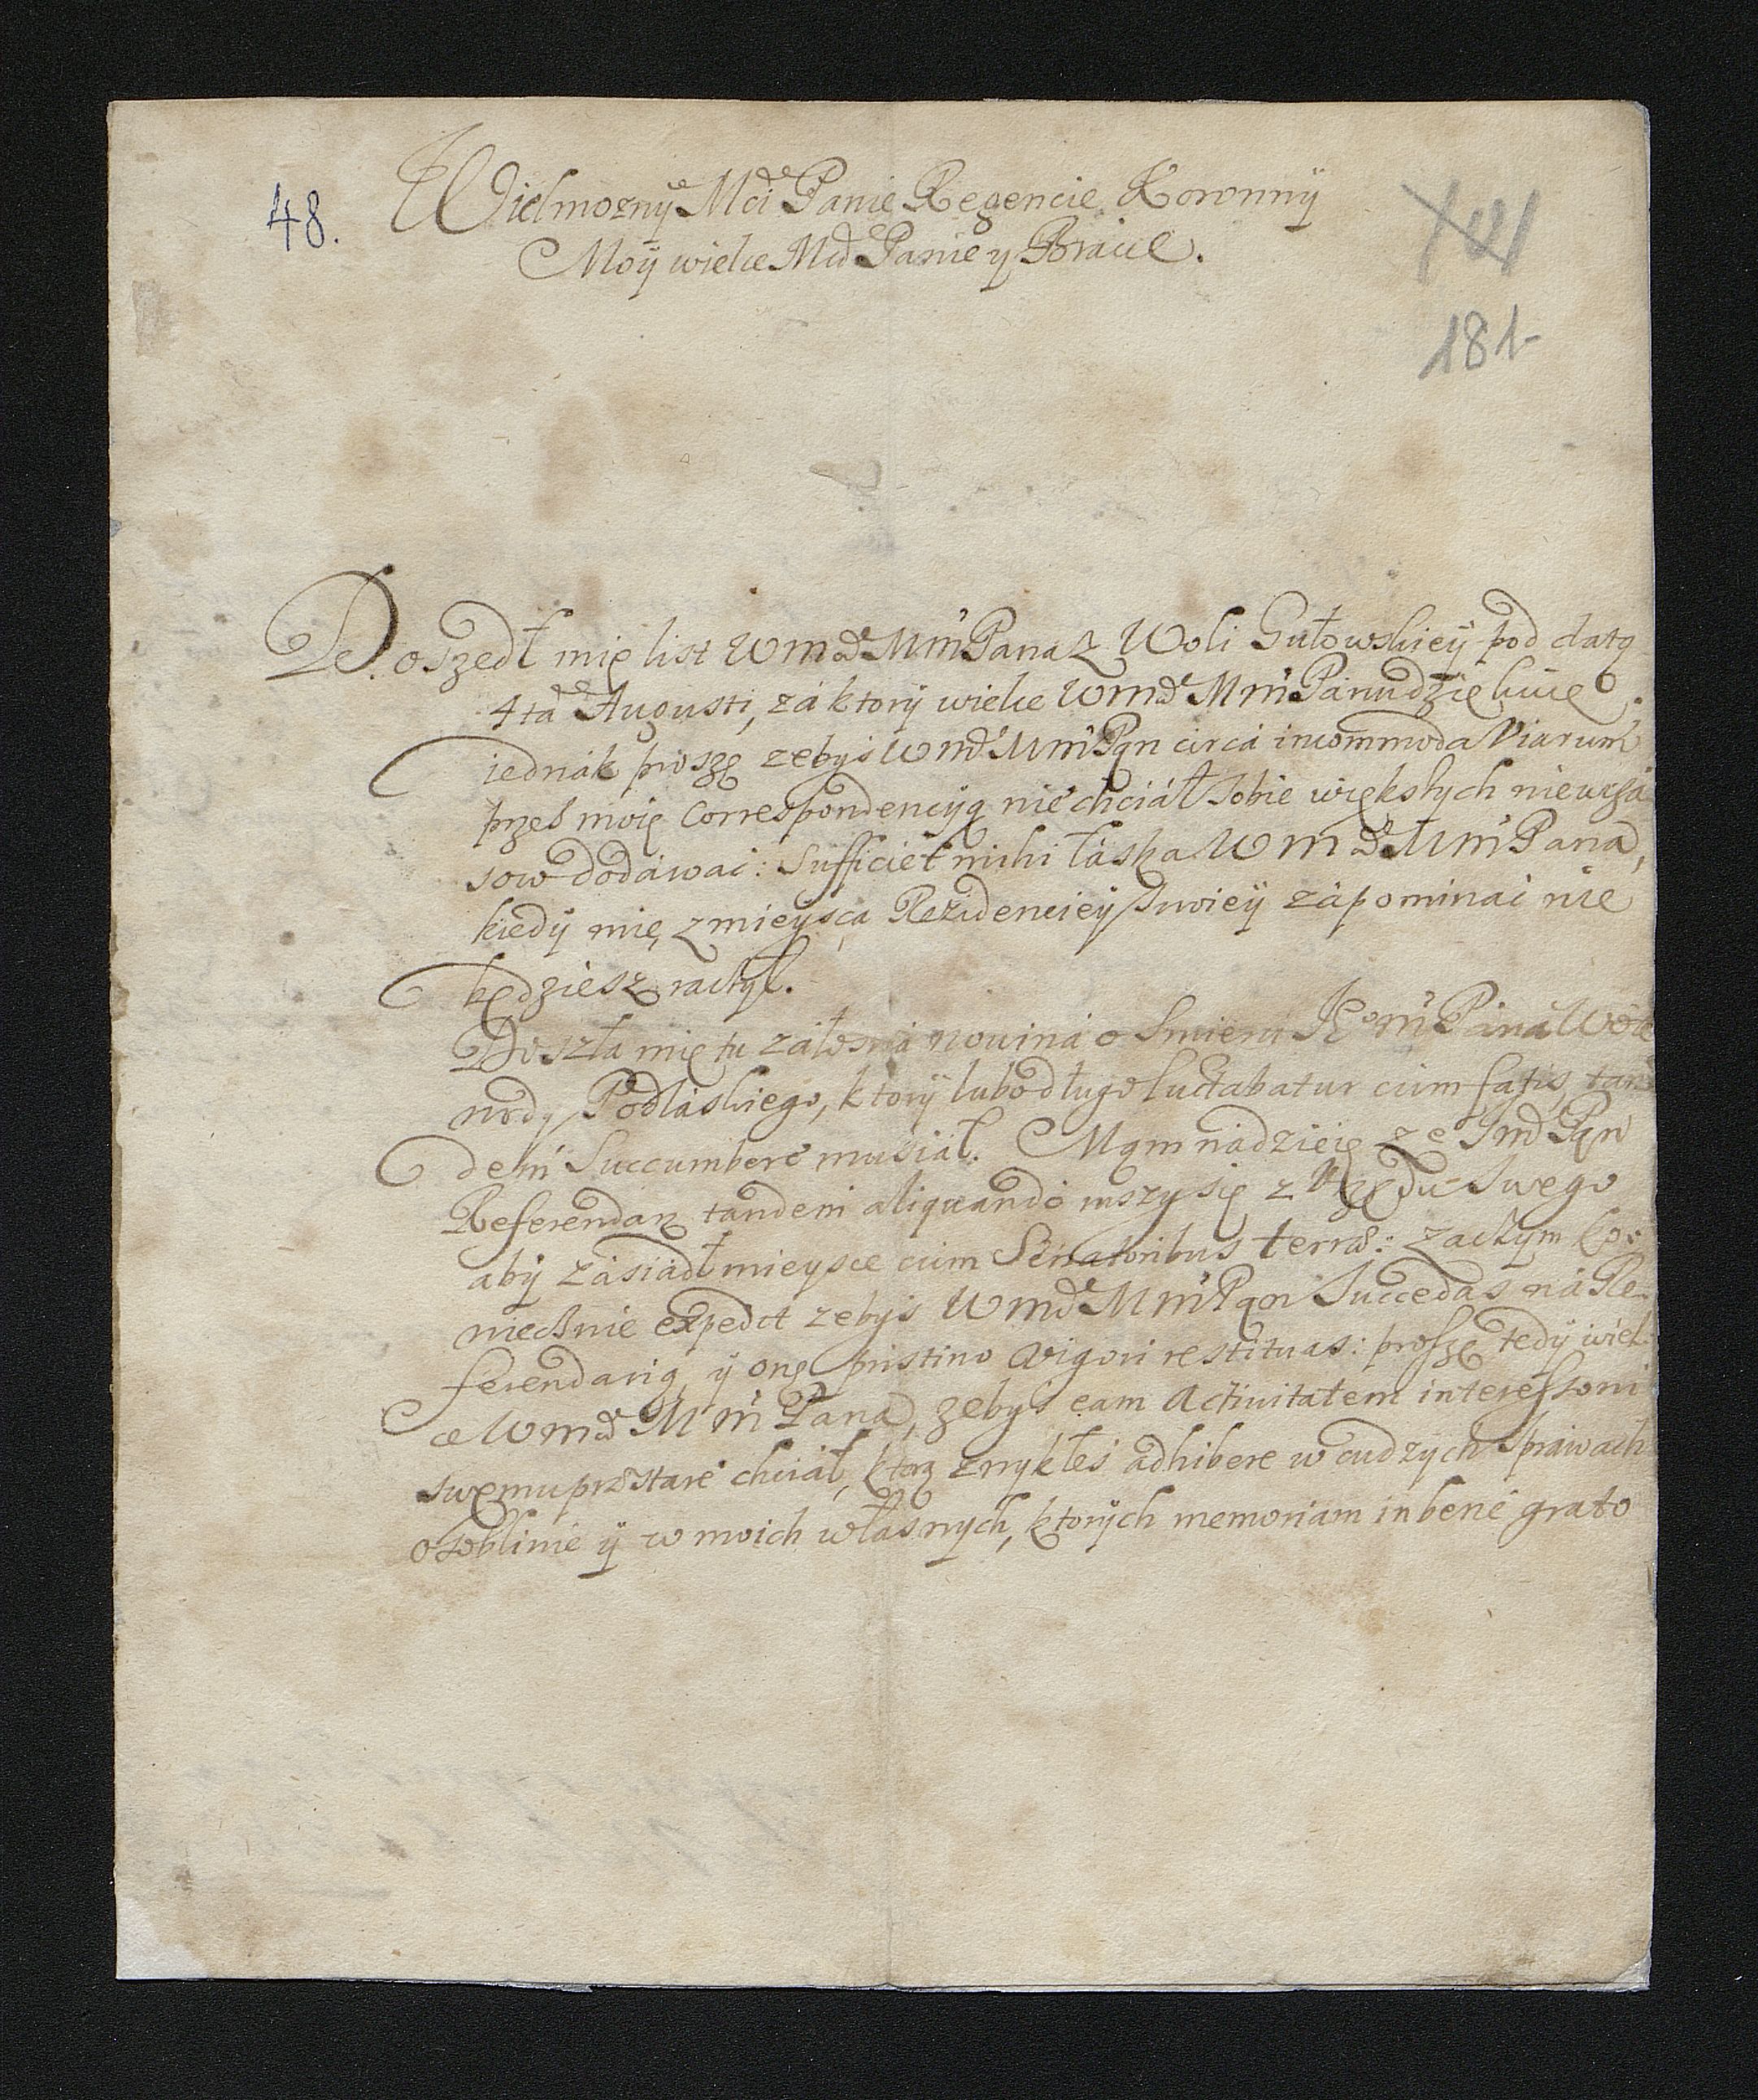 48.
Wielmozny Mci Panie Regencie Koronny
Moy wielce Mci Panie y Bracie.
181
Doszedł mię list WMci MmPana z Woli Gułowskiey pod datą
4ta Augusti, zá ktory wielce WMci MmPánu dziękuię
iednák proszę zebyś WMci MmPąn circa incommoda Viarum
przes moię Correspondencyą nie chciáł sobie większych niewczá
sow dodáwać: Sufficiet mihi łáska WMci MmPana,
kiedy mię z mieysca Rezidenciey swoiey zápomináć nie
będziesz raczył.
Doszła mię tu záłosna nowiná o Smierci JEom Páná Woie
wody Podláskiego, ktory lubo długo luctabatur cum fatis, tan
dem Succumbere musiáł. Mąm nádzieię ze Jmć Pąn
Referendarz tandem aliquando ruszy się z Urzędu Swego
aby zásiadł mieysce cum Senatoribus terrae: zaczym ko
niecznie expedit zebyś WMci MmPąn Succedas ná Re-
ferendarią y onę pristino vigori restituas: proszę tedy wiel
ce WMci MmPana, zebyś eam Activitatem interessowi
swemu prestare chciał, ktorą zwykłeś adhibere w cudzych spráwách
osobliwie y w moich własnych, ktorych memoriam in bene grato